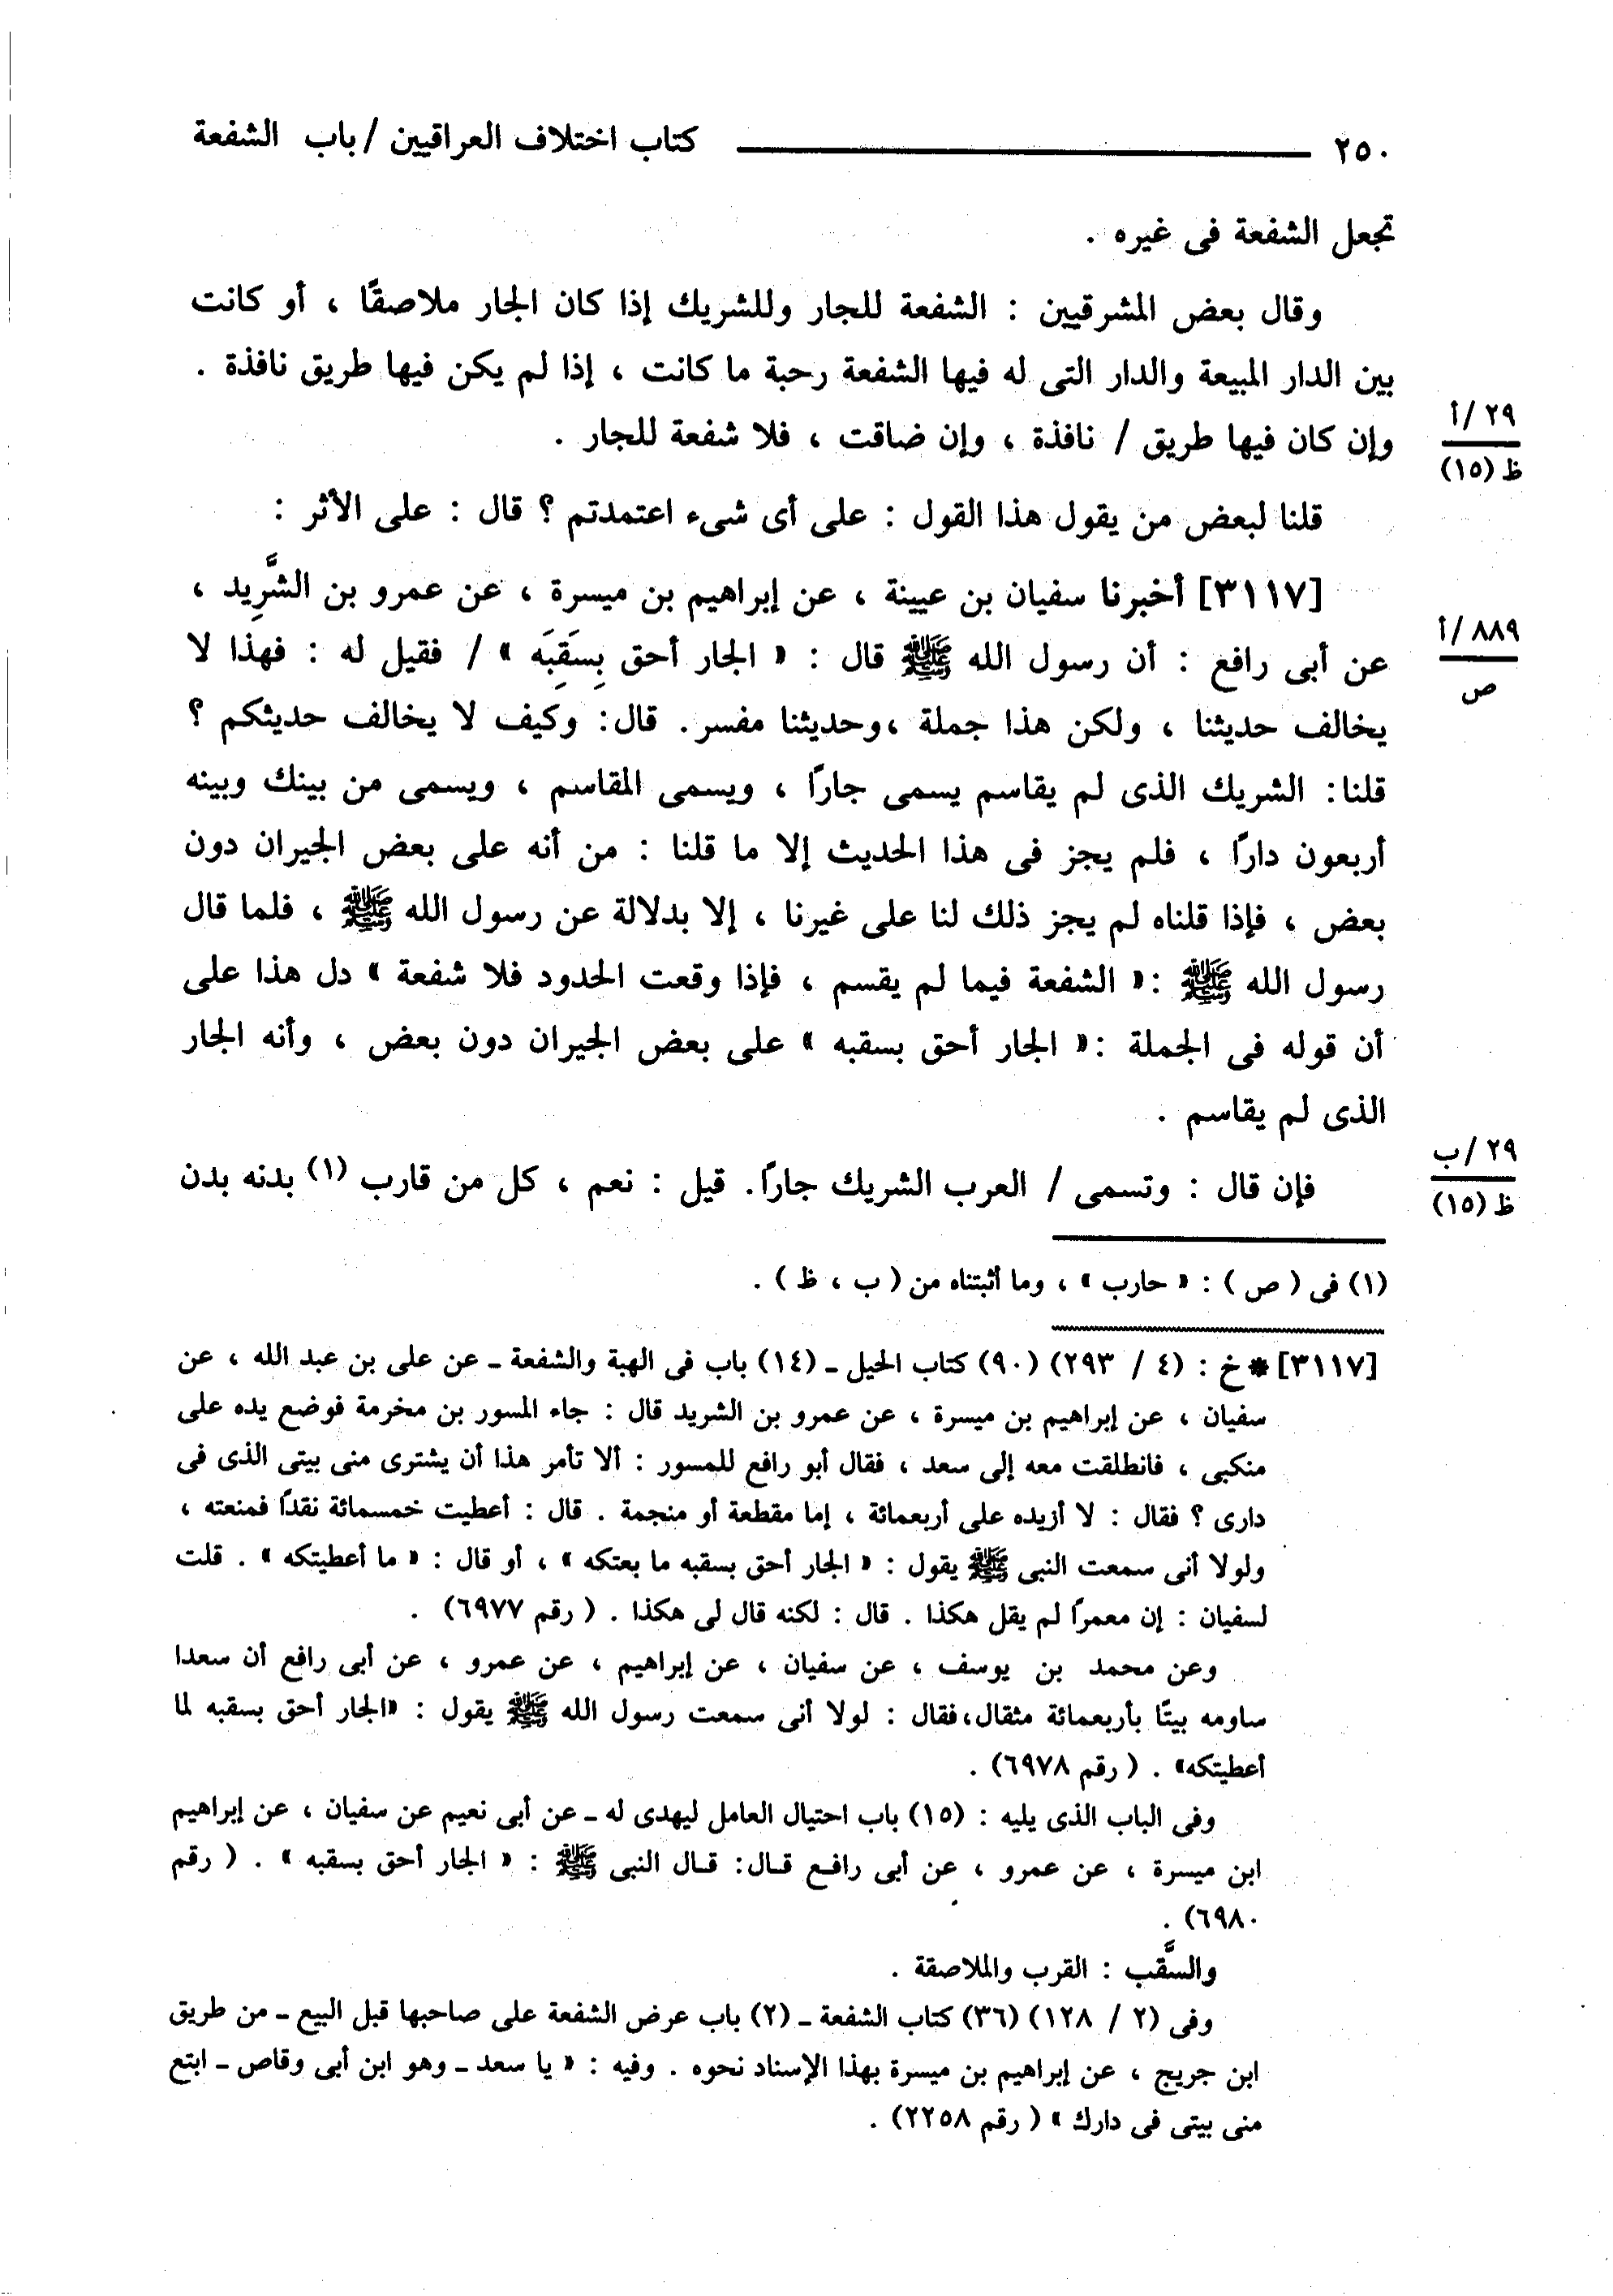 ٢٥٠ كتاب اختلاف العراقيين / باب الشفعة
تجعل الشفعة فى غيره .
وقال بعض المشرقيين : الشفعة للجار وللشريك إذا كان الجار ملاصقًا ، أو كانت
بين الدار المبيعة والدار التى له فيها الشفعة رحبة ما كانت ، إذا لم يكن فيها طريق نافذة .
٢٩/أ
وإن كان فيها طريق / نافذة ، وإن ضاقت ، فلا شفعة للجار .
ظ (١٥)
قلنا لبعض من يقول هذا القول : على أى شىء اعتمدتم ؟ قال : على الأثر :
[٣١١٧] أخبرنا سفيان بن عيينة ، عن إبراهيم بن ميسرة ، عن عمرو بن الشَّرِيد ،
٨٨٩/أ
ص
عن أبى رافع : أن رسول الله ﷺ قال : « الجار أحق بِسَقِبَه » / فقيل له : فهذا لا
يخالف حديثنا ، ولكن هذا جملة ،وحديثنا مفسر. قال: وكيف لا يخالف حديثكم ؟
قلنا: الشريك الذى لم يقاسم يسمى جارًا ، ويسمى المقاسم ، ويسمى من بينك وبينه
أربعون دارًا ، فلم يجز فى هذا الحديث إلا ما قلنا : من أنه على بعض الجيران دون
بعض ، فإذا قلناه لم يجز ذلك لنا على غيرنا ، إلا بدلالة عن رسول الله ﷺ ، فلما قال
رسول الله ﷺ :« الشفعة فيما لم يقسم ، فإذا وقعت الحدود فلا شفعة » دل هذا على
أن قوله فى الجملة :« الجار أحق بسقبه » على بعض الجيران دون بعض ، وأنه الجار
الذى لم يقاسم .
٢٩/ب
ظ (١٥)
فإن قال : وتسمى / العرب الشريك جارًا. قيل : نعم ، كل من قارب (١) بدنه بدن
(١) فى ( ص ) : « حارب » ، وما أثبتناه من ( ب ، ظ ) .
[٣١١٧]* خ : (٤ / ٢٩٣) (٩٠) كتاب الحيل ـ (١٤) باب فى الهبة والشفعة ـ عن على بن عبد الله ، عن
سفيان ، عن إبراهيم بن ميسرة ، عن عمرو بن الشريد قال : جاء المسور بن مخرمة فوضع يده على
منكبى ، فانطلقت معه إلى سعد ، فقال أبو رافع للمسور : ألا تأمر هذا أن يشترى منى بيتى الذى فى
دارى ؟ فقال : لا أزيده على أربعمائة ، إما مقطعة أو منجمة . قال : أعطيت خمسمائة نقدًا فمنعته ،
ولولا أنى سمعت النبى ﷺ يقول : « الجار أحق بسقبه ما بعتكه » ، أو قال : « ما أعطيتكه » . قلت
لسفيان : إن معمرًا لم يقل هكذا . قال : لكنه قال لى هكذا . ( رقم ٦٩٧٧) .
وعن محمد بن يوسف ، عن سفيان ، عن إبراهيم ، عن عمرو ، عن أبى رافع أن سعدا
ساومه بيتًا بأربعمائة مثقال،فقال : لولا أنى سمعت رسول الله ﷺ يقول : «الجار أحق بسقبه لما
أعطيتكه» . ( رقم ٦٩٧٨) .
وفى الباب الذى يليه : (١٥) باب احتيال العامل ليهدى له ـ عن أبى نعيم عن سفيان ، عن إبراهيم
ابن ميسرة ، عن عمرو ، عن أبى رافع قال: قال النبى ﷺ : « الجار أحق بسقبه » . ( رقم
٦٩٨٠) .
والسَّقب : القرب والملاصقة .
وفى (٢ / ١٢٨) (٣٦) كتاب الشفعة ـ (٢) باب عرض الشفعة على صاحبها قبل البيع ـ من طريق
ابن جريج ، عن إبراهيم بن ميسرة بهذا الإسناد نحوه . وفيه : « يا سعد ـ وهو ابن أبى وقاص ـ ابتع
منى بيتى فى دارك » ( رقم ٢٢٥٨) .